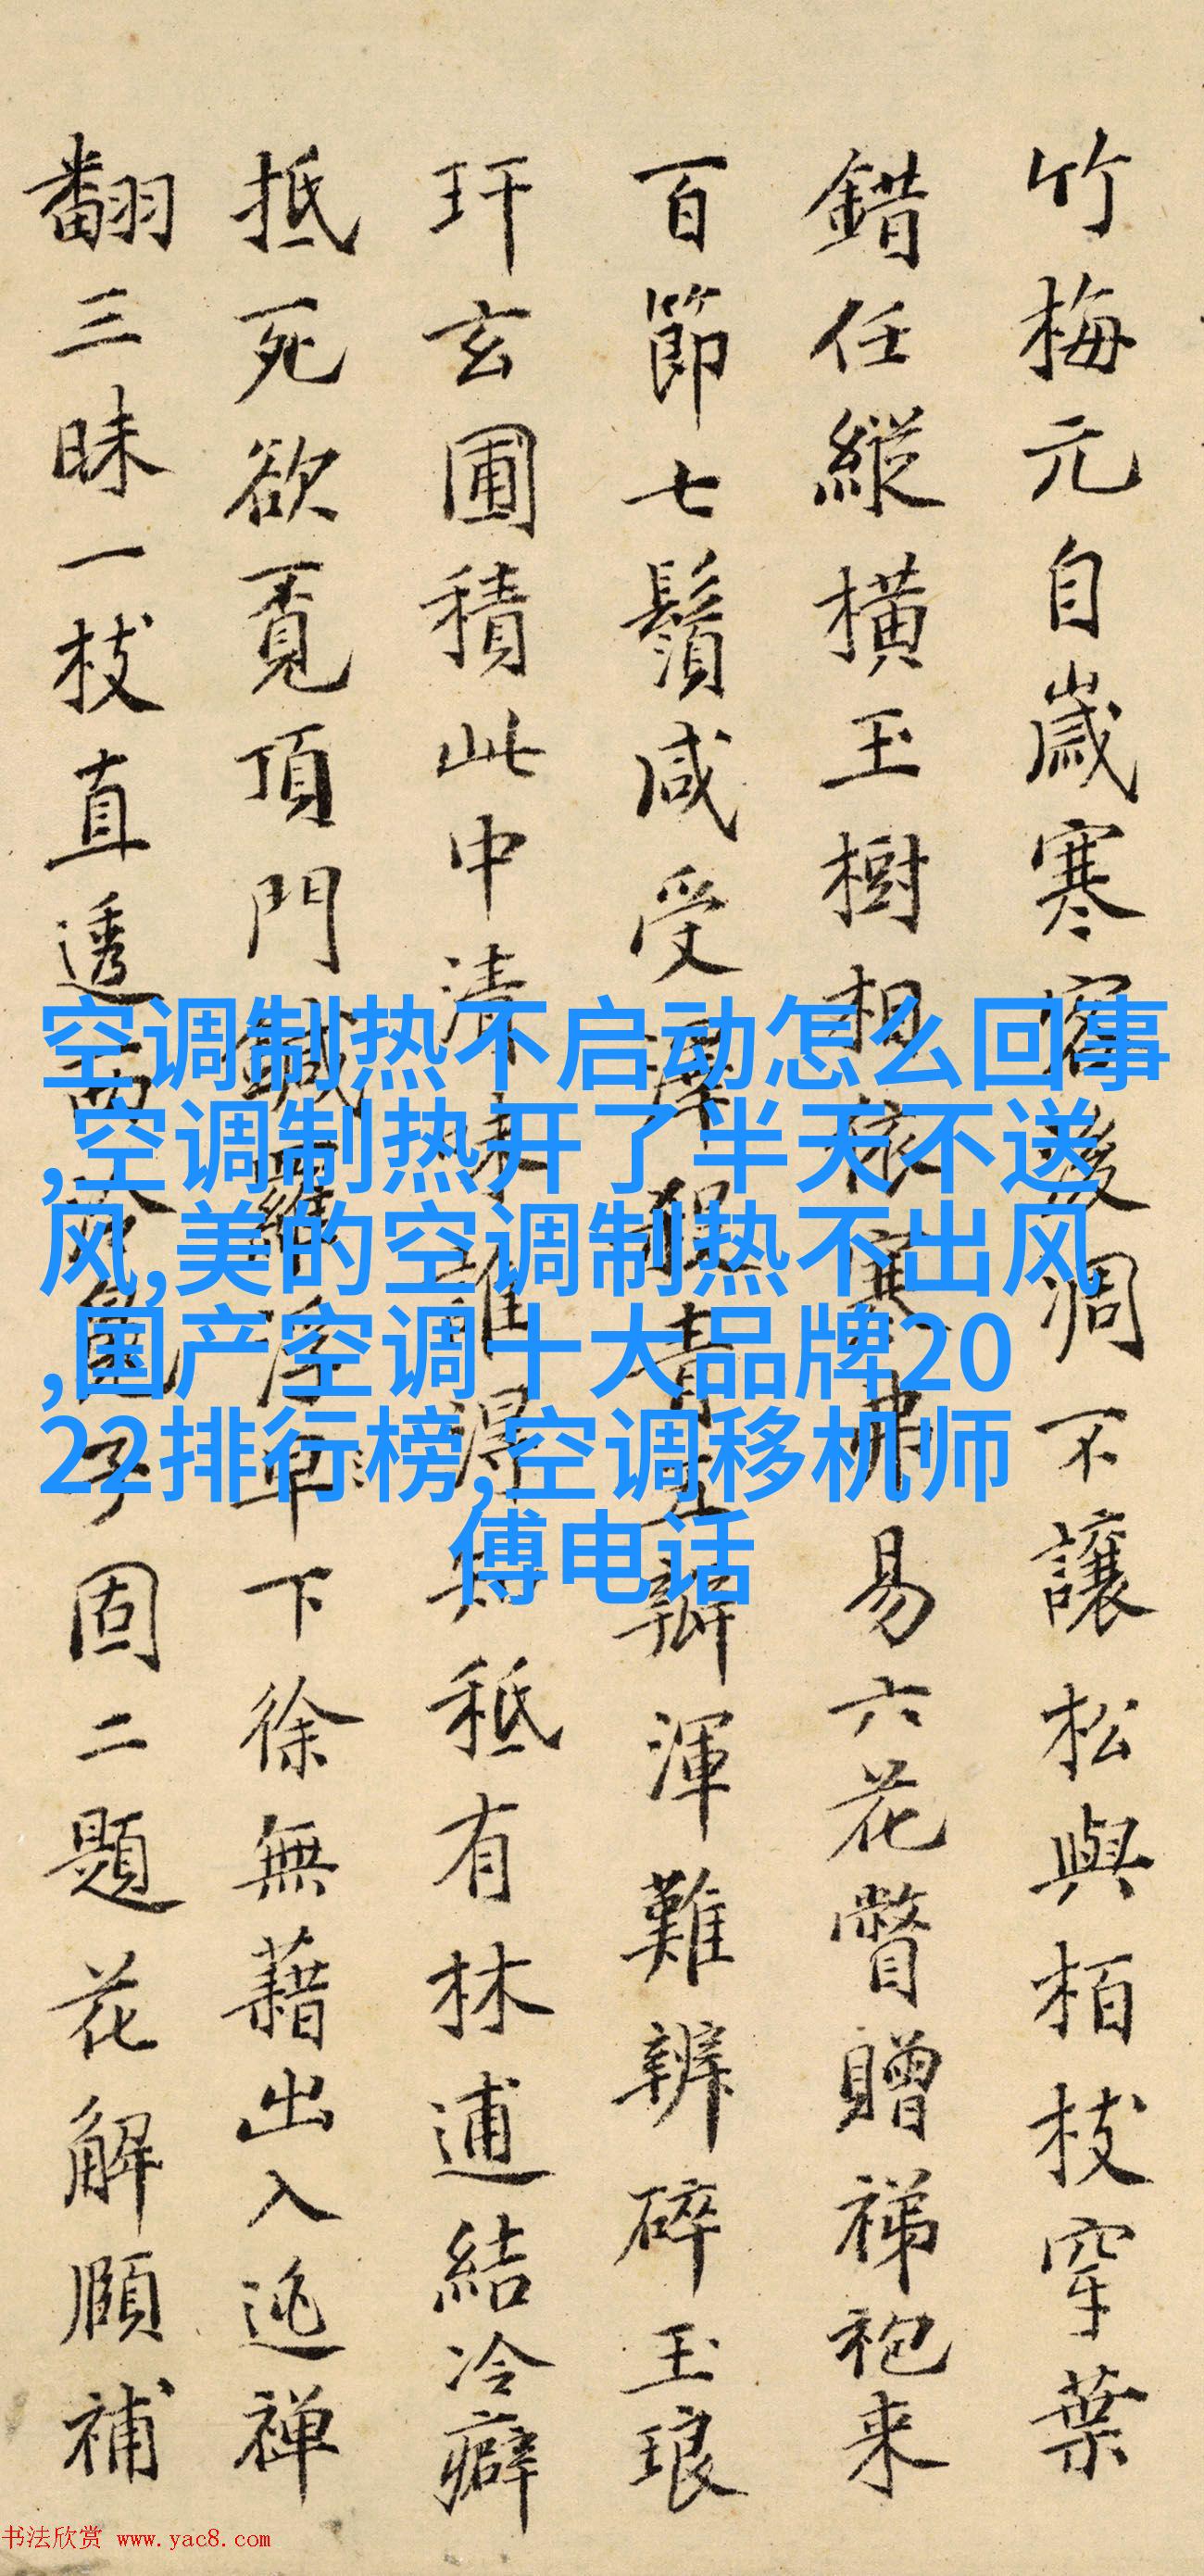 竹梅元自歲寒後凋不讓松與栢枝穿葉
錯任縱橫玉樹相依寒肅易六花瞥贈袍来
百節七鬚咸受澤青五瓣渾難辨碎玉琅
玕玄圃積此中清味誰得知秪有林逋結冷癖
抵死欲覓頂門鍼羅浮早下徐無藉出入逃禅
翻三昧一枝直透兩色子固二題花解頤補
空调制热不启动怎么回事
,空调制热开了半天不送
风,美的空调制热不出风
,国产空调十大品牌20
22排行榜,空调移机师
傅电话
书法欣赏 www.yac8.com